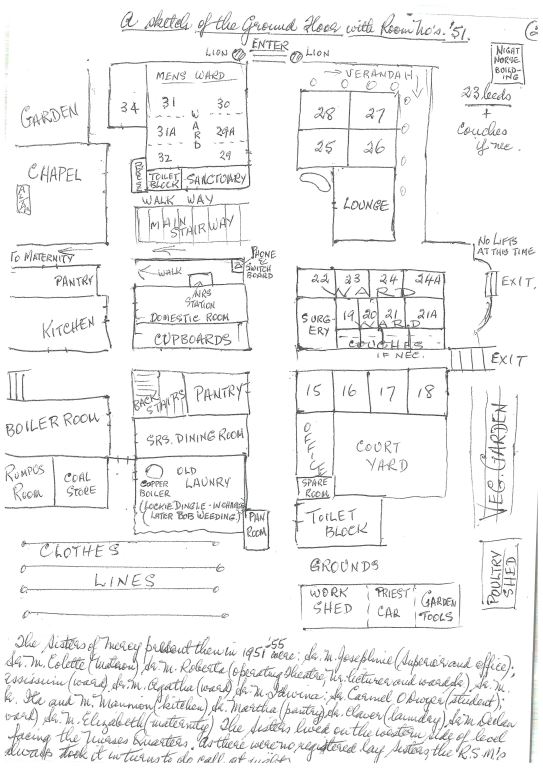 A sketch of the Ground Floor with Room No's. '51.
ENTER
LION
LION
NIGHT
NURSE
BUILD-
ING
VERANDAH
23 beds
+
Couches
if nec.
MENS WARD
34
31
30
31A
29A
32
29
WARD
28
27
25
26
GARDEN
CHAPEL
TOILET
BLOCK
SANCTUARY
LOUNGE
WALK WAY
MAIN
STAIRWAY
TO MATERNITY
NO LIFTS
AT THIS TIME
PANTRY
WALK
PHONE &
SWITCH
BOARD
NRS
STATION
DOMESTIC ROOM
CUPBOARDS
KITCHEN
22
23
24
24A
WARD
EXIT.
SURG-
ERY
19
20
21
21A
WARD
COUCHES
IF NEC.
EXIT
BACK
STAIRS
PANTRY
15
16
17
18
BOILER ROOM
SRS. DINING ROOM
OFFICE
COURT
YARD
VEG. GARDEN
RUMPUS
ROOM
COAL
STORE
COPPER
BOILER
OLD
LAUNRY
(LOCKIE DINGLE - IN CHARGE
LATER BOB WEEDING.)
PAN
ROOM
SPARE
ROOM
TOILET
BLOCK
CLOTHES
LINES
GROUNDS
WORK
SHED
PRIEST
CAR
GARDEN
TOOLS
POULTRY
SHED
The Sisters of Mercy then in 1951 '55 were: Sr. M. Josephine (Superior and office);
Sr. M. Colette (Matron), Sr. M. Roberta (operating theatre, Nr. lecturer and wards), Sr. M.
(ward), Sr. M. Agatha (ward), Sr. M. ; Sr. Carmel O'Dwyer (student);
Ita and M. (kitchen), Sr. Martha (pantry), Sr. Claver (laundry), Sr. M. Declan
ward), Sr. M. Elizabeth (maternity). The Sisters lived on the western side of level
facing the Nurses Quarters. As there were no registered lay sisters the R.S.M.'s
always took it in turns to do call at night.